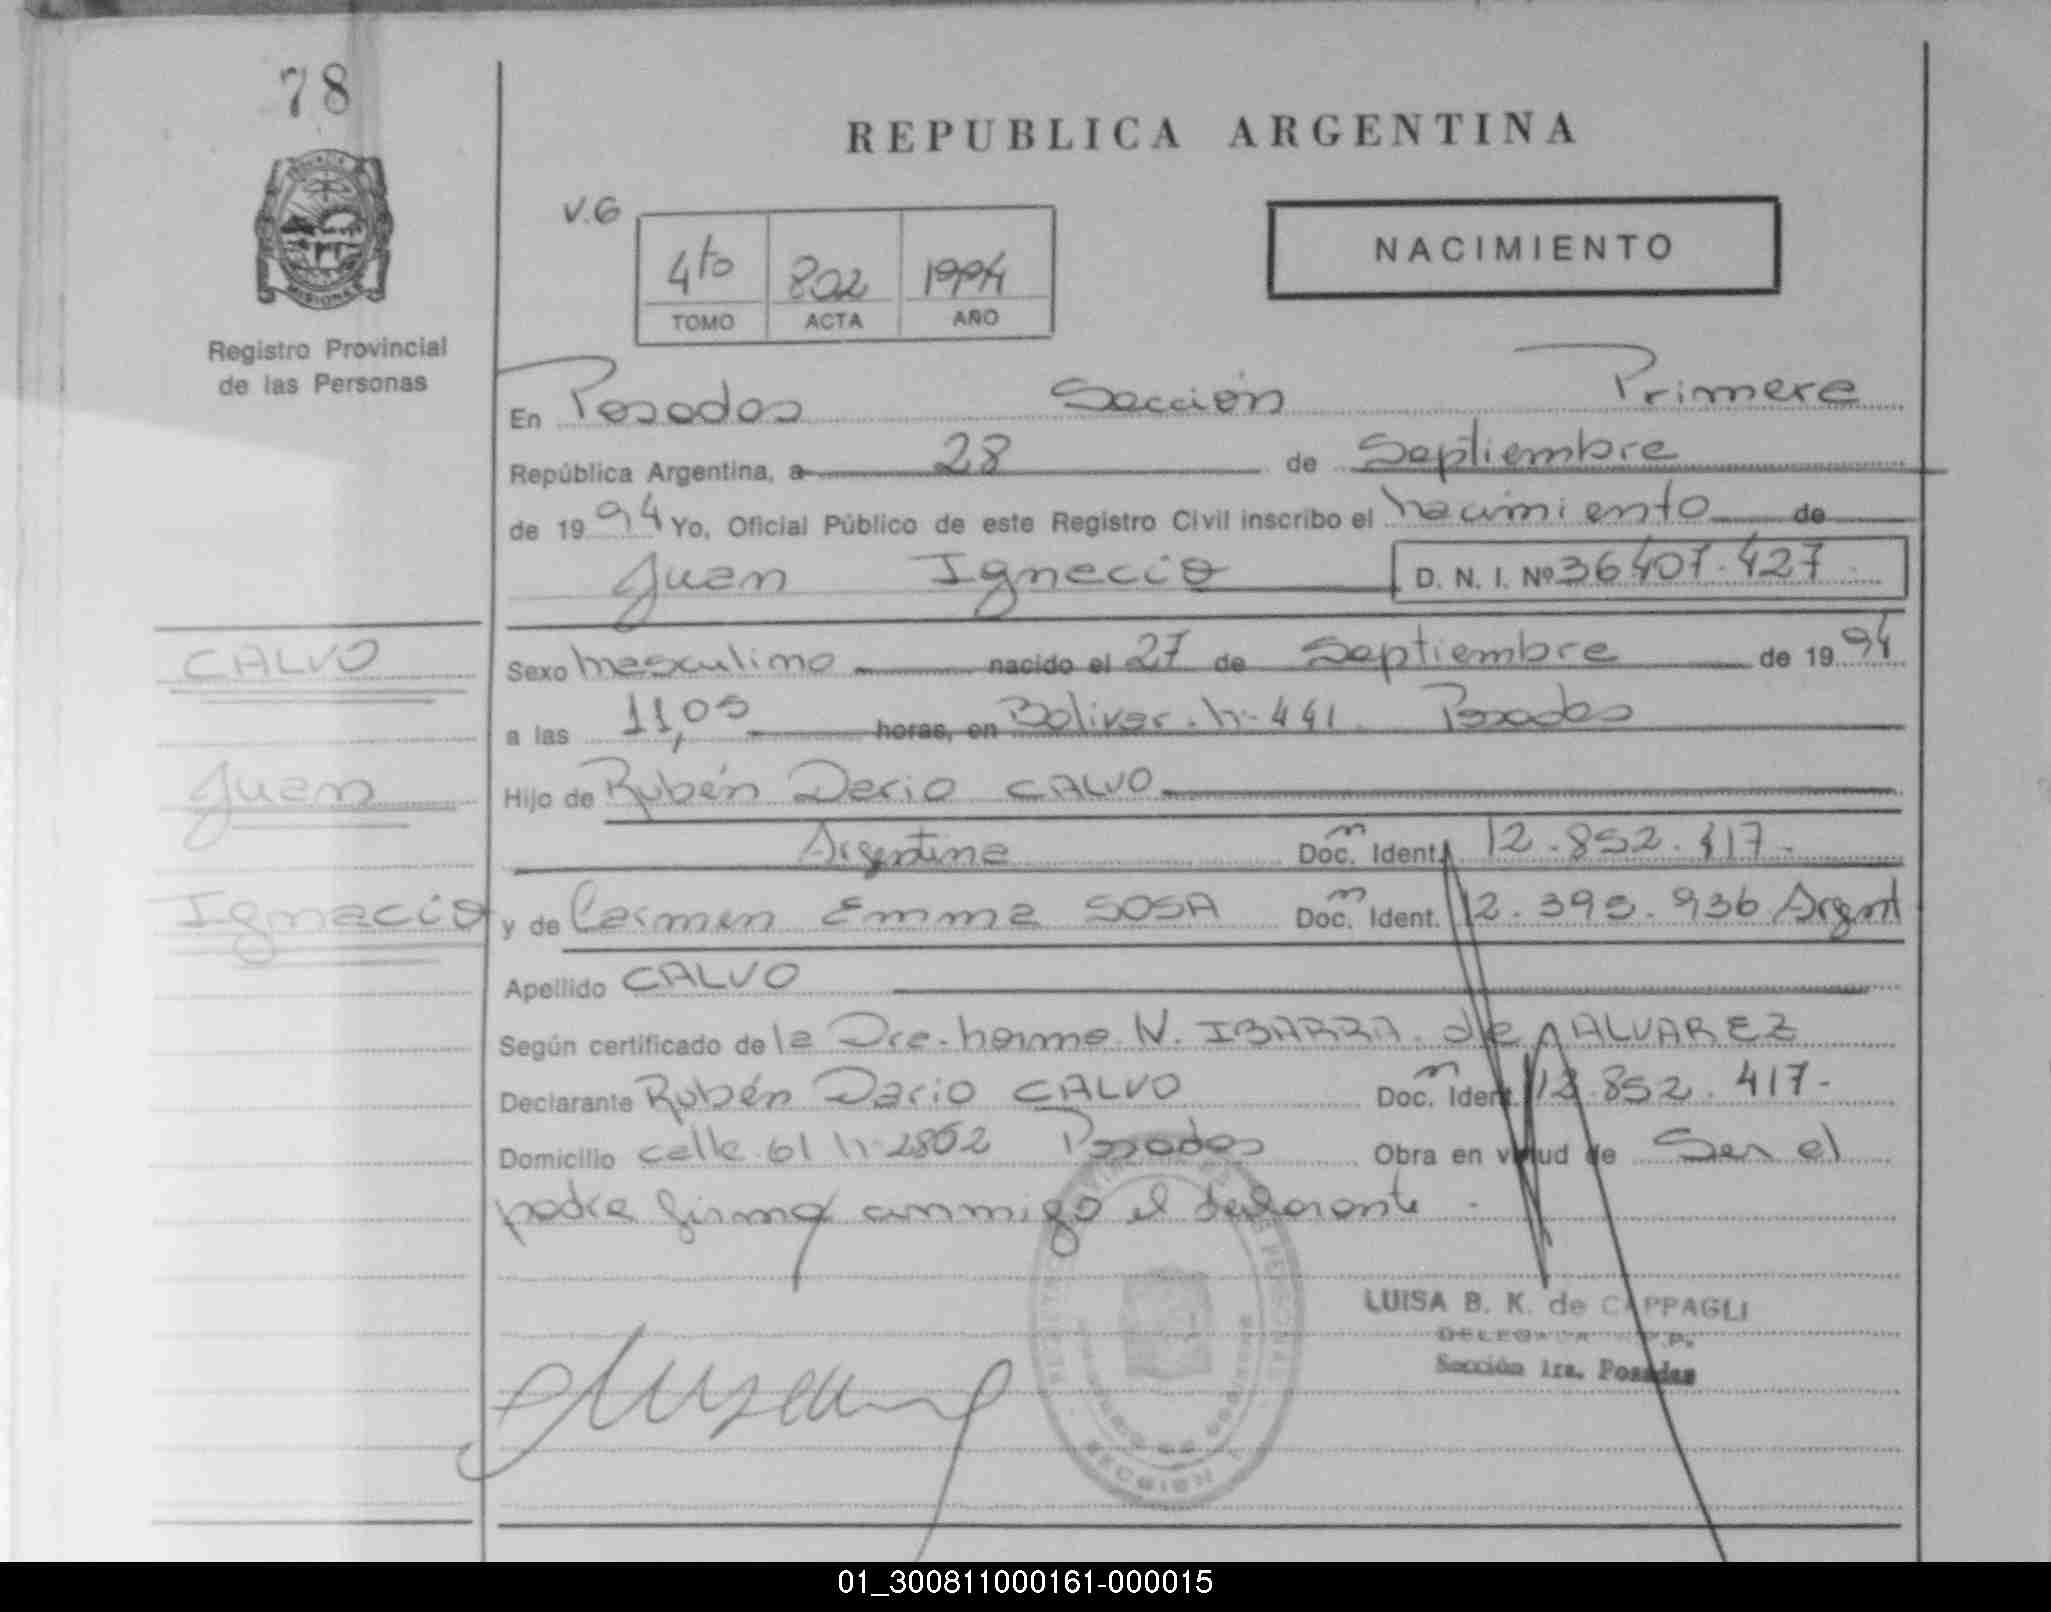 78
REPUBLICA ARGENTINA
V.6
4to 802 1994
TOMO ACTA AÑO
NACIMIENTO
MISIONES
Registro Provincial
de las Personas
En Posadas Sección Primera
República Argentina, a 28 de Septiembre
de 1994 Yo, Oficial Público de este Registro Civil inscribo el nacimiento de
Juan Ignacio D. N. I. Nº 36.407.427
CALVO
Sexo masculino nacido el 27 de Septiembre de 1994
a las 11,05 horas, en Bolivar n- 441 Posadas
Juan
Hijo de Rubén Dario CALVO
Argentina Doc. Ident. 12.852.417-
Ignacio
y de Carmen Emma SOSA Doc. Ident. 12.395.936 Argent
Apellido CALVO
Según certificado de la Dra. Norma N. IBARRA de ALVAREZ
Declarante Rubén Dario CALVO Doc. Ident. 12.852.417-
Domicilio calle 61 n- 2862 Posadas Obra en virtud de Ser el
padre firma conmigo el declarante -
LUISA B. K. de CAPPAGLI
DELEGADA R.P.P.
Sección 1ra. Posadas
SECCION 1
01_300811000161-000015